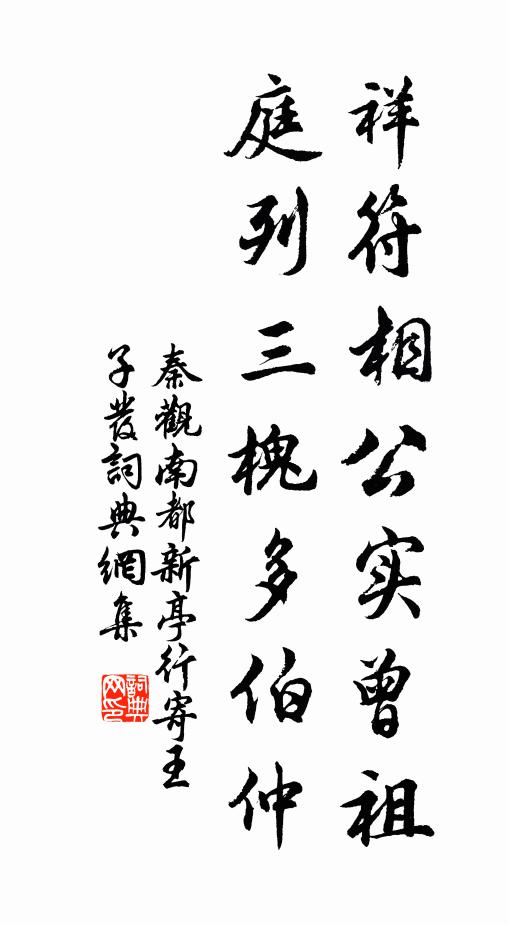 祥符相公实曾祖
庭列三槐多伯仲
秦觀南都新亭行寄王
子發詞典網集
詞典
网印